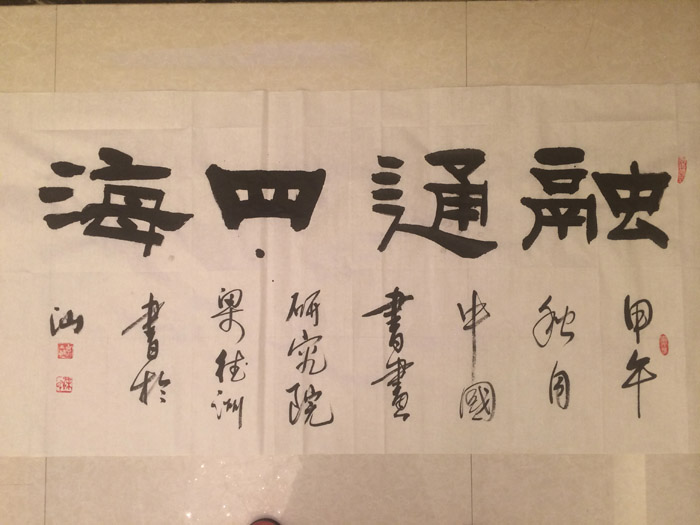 融通四海
甲午
秋月
中國
書畫
研究院
梁桂洲
書於
汕